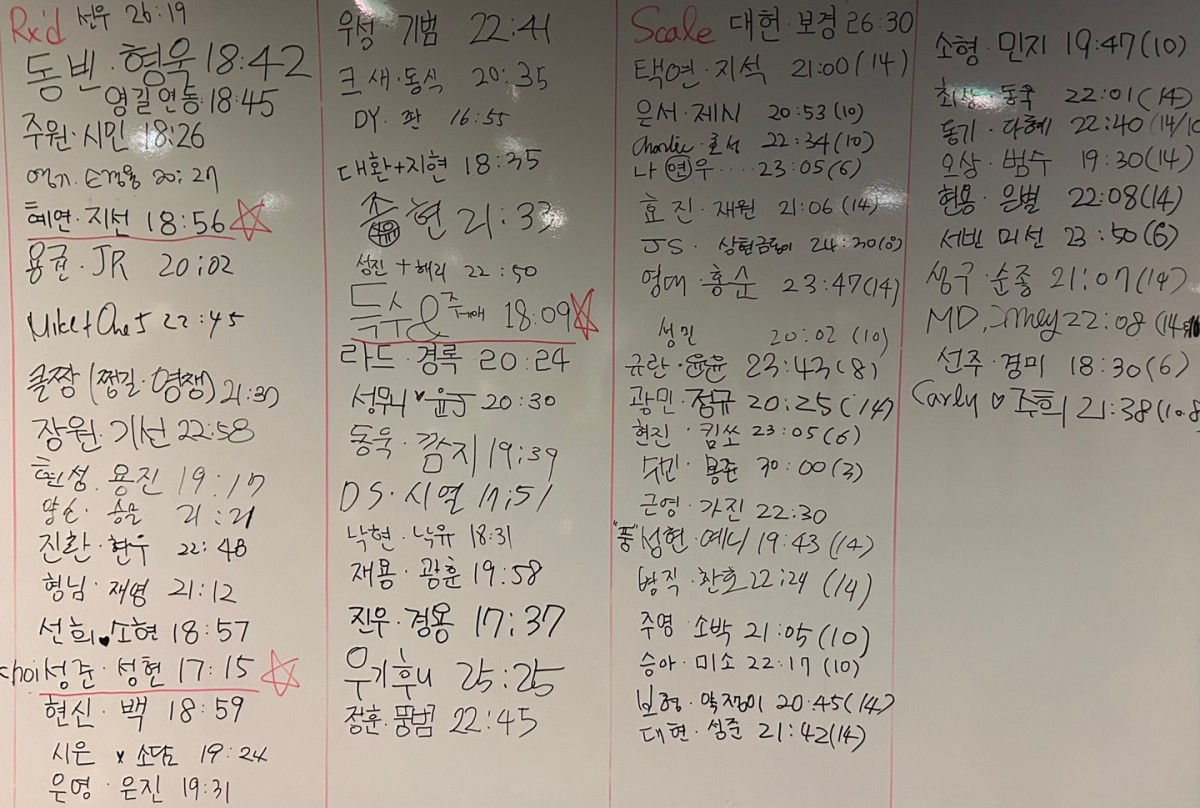 Rx'd 선우 26:19
동빈·형욱 18:42
영길 연동 18:45
주원·시민 18:26
20:27
혜연·지선 18:56
용권·JR 20:02
Mike+One5 22:45
클짱 (쩡길·영쟁) 21:30
장원·기선 22:58
현성·용진 19:17
21:21
진환·현우 22:48
형님·재영 21:12
선희♥소현 18:57
choi성준·성현 17:15
현신·백 18:59
시은 x 소담 19:24
은영·은진 19:31
우성 기범 22:41
크새·동식 20:35
DY·판 16:55
대환+지현 18:35
현 21:33
성진+해리 22:50
득수& 18:09
라드·경록 20:24
성무니♥윤J 20:30
동욱·깜지 19:39
DS·시열 17:51
낙현·낙유 18:31
재용·광훈 19:58
진우·경용 17:37
우기후니 25:25
정훈·풍범 22:45
Scale 대헌·보경 26:30
택연·지석 21:00(14)
은서·제시 20:53(10)
Charlie·로성 22:34(10)
나 연우····23:05(6)
효진·재원 21:06(14)
JS· 24:30
영대·홍순 23:47(14)
성민 20:02 (10)
규란·윤윤 23:43(8)
광민·정규 20:25(14)
현진·킴쏘 23:05(6)
30:00(3)
근영·가진 22:30
"풍"성현·예니 19:43(14)
병직·찬호 22:24 (14)
주영·소박 21:05(10)
승아·미소 22:17(10)
보형· 20:45(14)
대현·성준 21:42(14)
소형·민지 19:47(10)
동욱 22:01(14)
동기·다혜 22:40(14/10
오상·범수 19:30(14)
현용·은별 22:08(14)
서빈 미선 23:50(6)
성구·순종 21:07(14)
MD, 22:08
선주·경미 18:30(6)
Carly♡주희 21:38(10.8